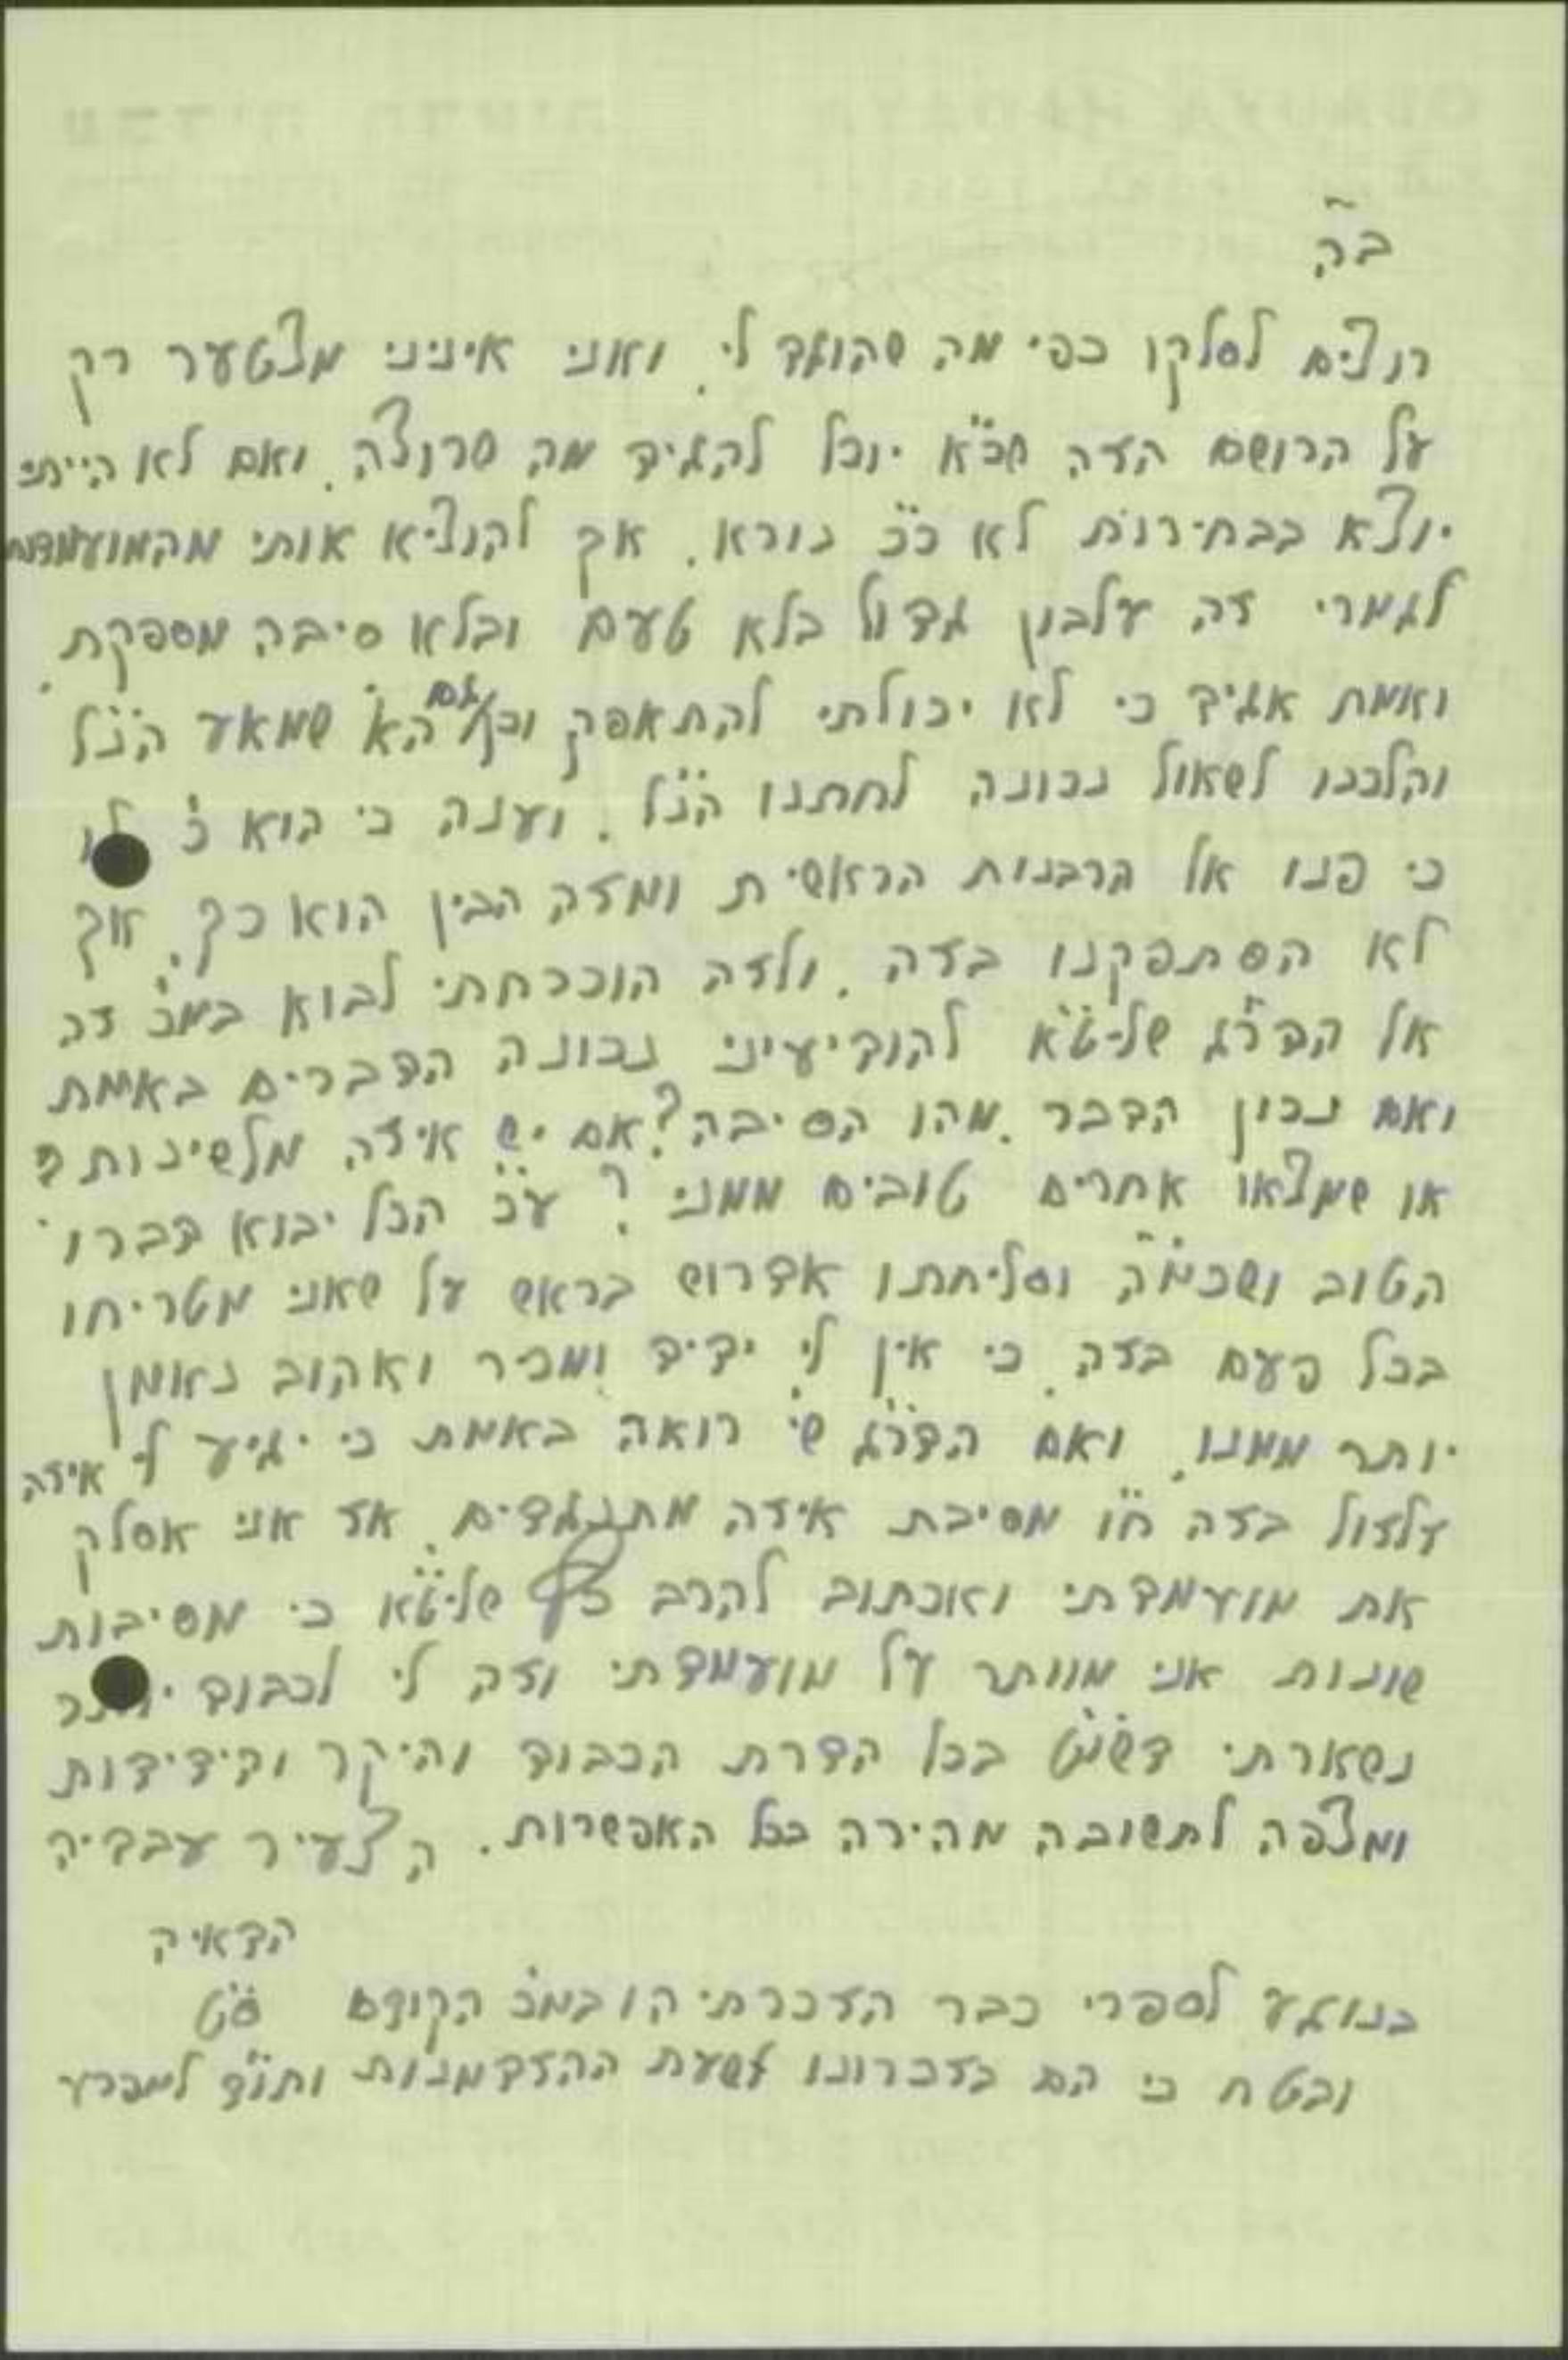 ב״ה
רוצים לסלקו כפי מה שהוגד לי. ואני אינני מצטער רק
על הרושם הזה שכ״א יוכל להגיד מה שרוצה. ואם לא הייתי
יוצא בבחירות לא כ״כ נורא. אך להוציא אותי מהמועמדות
לגמרי זה עלבון גדול בלא טעם ובלא סיבה מספקת.
ואמת אגיד כי לא יכולתי להתאפק וכן גם הא׳ שמאע הנ״ל
והלכנו לשאול נכונה לחתנו הנ״ל. וענה כי הוא כ׳ לו
כי פנו אל הרבנות הראשית ומזה הבין הוא כך. אך
לא הסתפקנו בזה. ולזה הוכרחתי לבוא במכ׳ זה
אל הדר״ג שליט״א להודיעיני נכונה הדברים באמת
ואם נכון הדבר. מהו הסיבה? אם יש איזה מלשינות?
או שמצאו אחרים טובים ממני? ע״כ הכל יבוא דברו
הטוב ושכמ״ה וסליחתו אדרוש בראש על שאני מטריחו
בכל פעם בזה. כי אין לי ידיד ומכיר ואהוב נאומן
יותר ממנו. ואם הדר״ג שי׳ רואה באמת כי יגיע לי איזה
זלזול בזה ח״ו מסיבת איזה מתנגדים. אז אני אסלק
את מועמדתי ואכתוב להרב שליט״א כי מסיבות
שונות אני מוותר על מועמדתי וזה לי לכבוד יותר
נשארתי דשו״ט בכל הדרת הכבוד והיקר והידידות
ומצפה לתשובה מהירה ככל האפשרות. הצעיר עבדיה
הדאיה
בנוגע לספרי כבר הזכרתיהו במכ׳ הקודם ס״ט
ובטח כי הם בזכרונו לשעת ההזדמנות ותו״ד למפרע